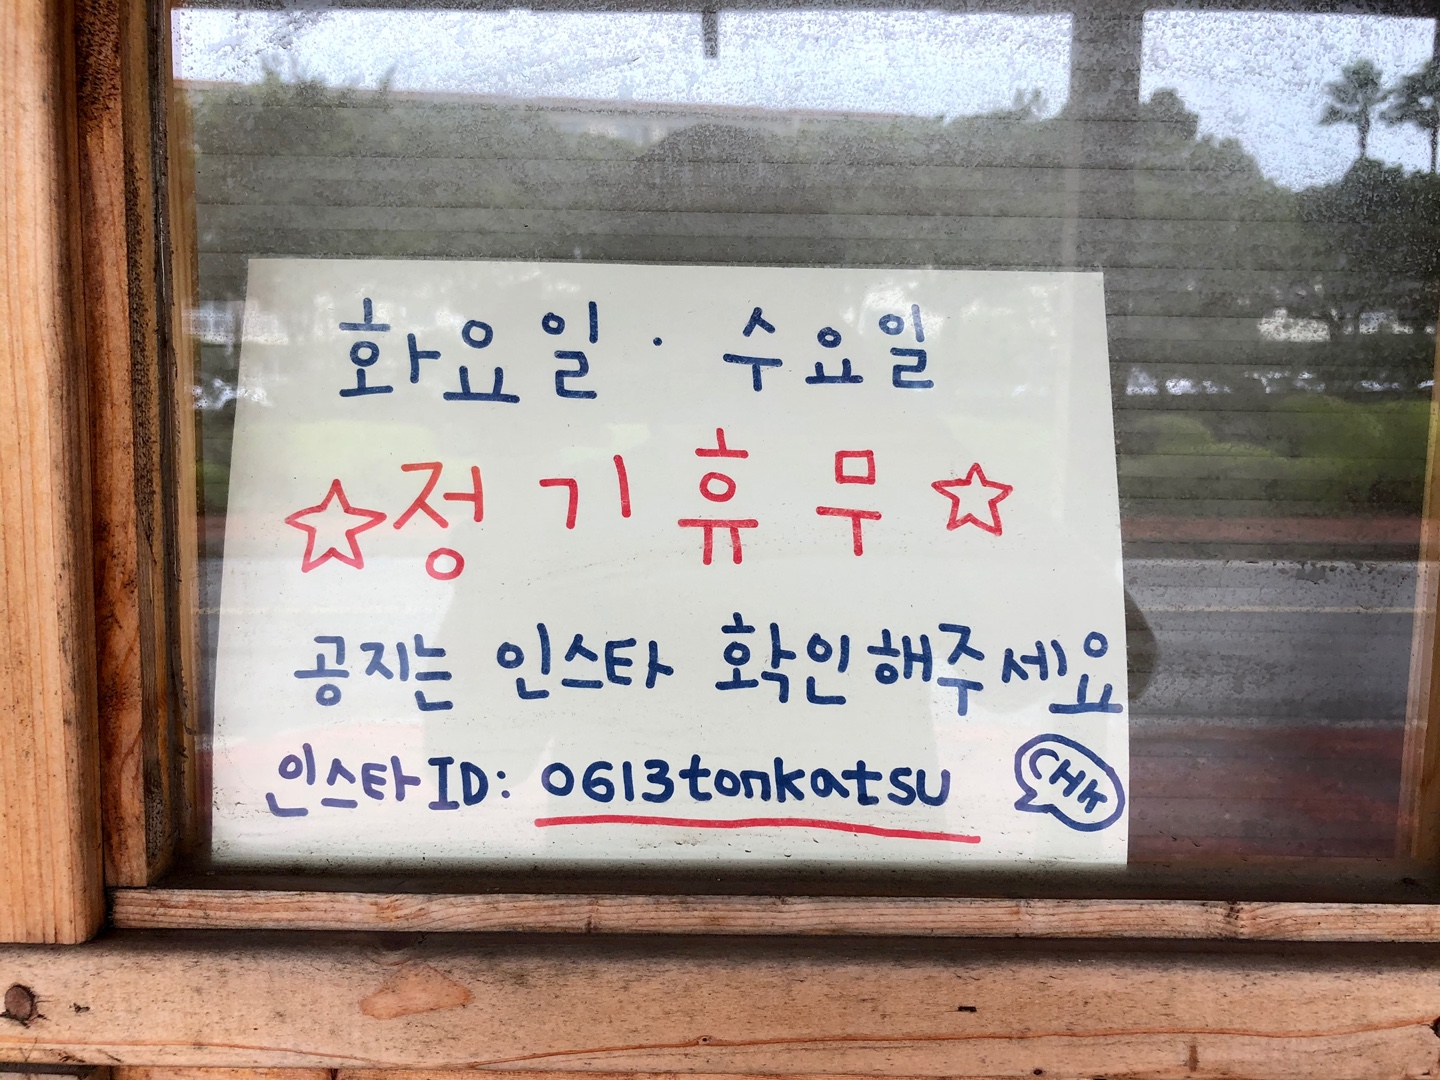 화요일 · 수요일
☆정기휴무☆
공지는 인스타 확인해주세요
인스타 ID: 0613tonkatsu
CHK